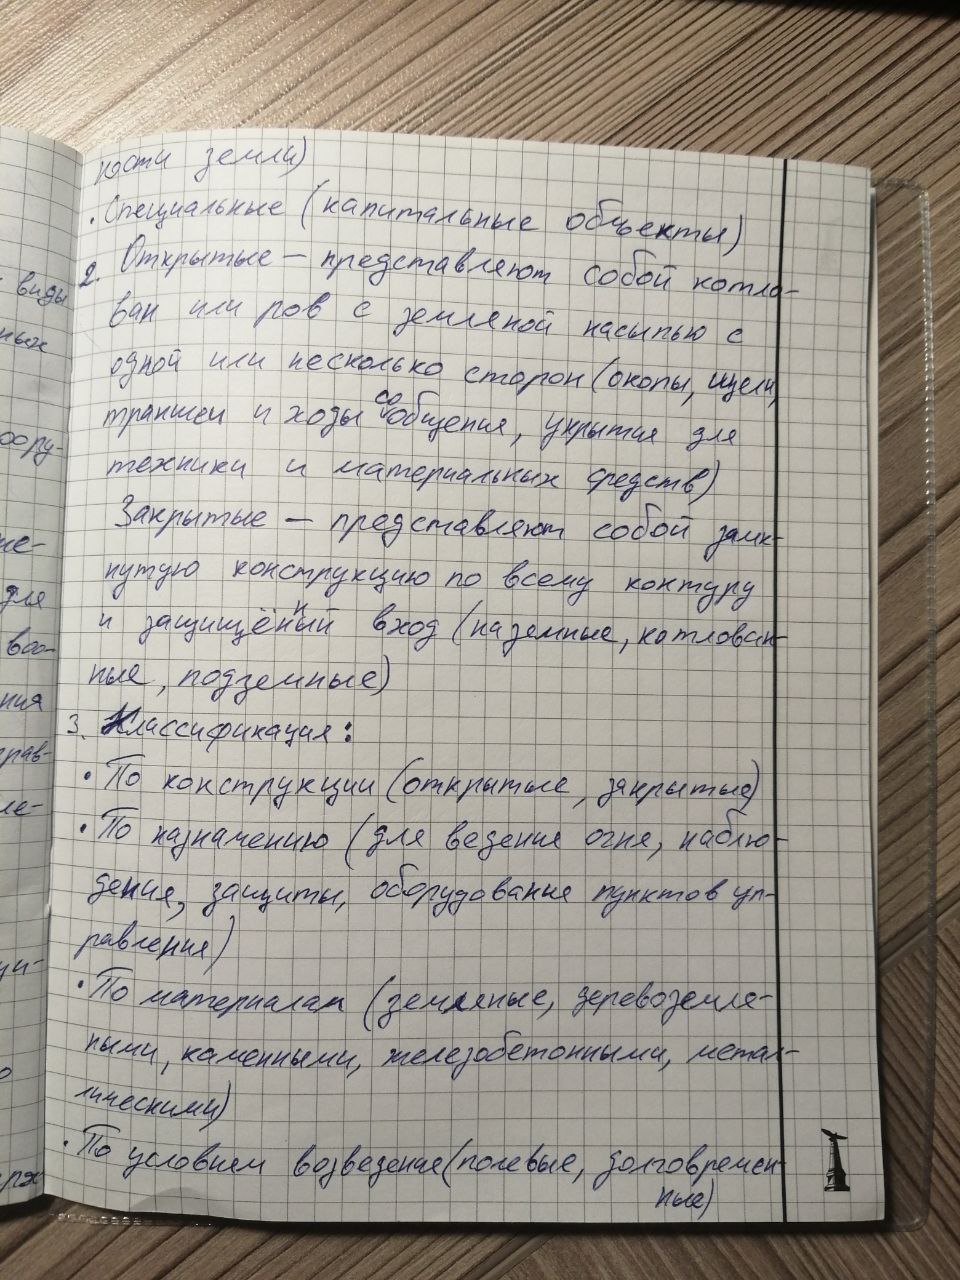 ности земли)
• Специальные (капитальные объекты)
2. Открытые — представляют собой котло-
ван или ров с земляной насыпью с
одной или несколько сторон (окопы, щели,
траншеи и ходы сообщения, укрытия для
техники и материальных средств)
Закрытые — представляют собой замк-
нутую конструкцию по всему контуру
и защищённый вход (наземные, котлован-
ные, подземные)
3. Классификация:
• По конструкции (открытые, закрытые)
• По назначению (для ведения огня, наблю-
дения, защиты, оборудования пунктов уп-
равления)
• По материалам (земляные, деревоземля-
ными, каменными, железобетонными, метал-
лическими)
• По условиям возведения (полевые, долговремен-
ные)
виды
ных
оору-
не-
для
воо-
ния
прав-
ле-
ци-
о